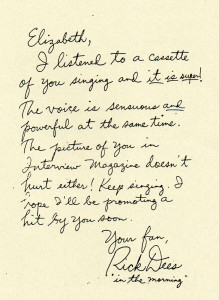 Elizabeth,
I listened to a cassette
of you singing and it is super!
The voice is sensuous and
powerful at the same time.
The picture of you in
Interview Magazine doesn't
hurt either! Keep singing. I
hope I'll be promoting a
hit by you soon.
Your fan,
Rick Dees
"in the morning"